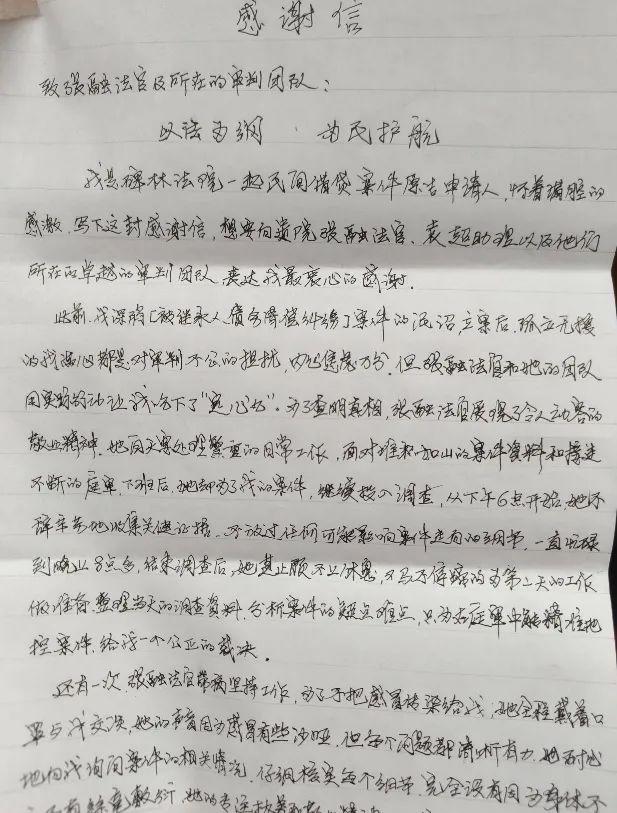 感谢信
致张融法官及所在的审判团队：
以法为纲 · 为民护航
我是碑林法院一起民间借贷案件原告申请人，怀着满腔的
感激，写下这封感谢信，想要向贵院张融法官、袁超助理以及他们
所在的卓越的审判团队，表达我最衷心的感谢。
此前，我深陷［被继承人债务清偿纠纷］案件的泥沼，立案后，孤立无援
的我满心都是对审判不公的担忧，内心焦虑万分。但张融法官和她的团队
用实际行动让我吃下了“定心丸”。为了查明真相，张融法官展现了令人动容的
敬业精神，她白天要处理繁重的日常工作，面对堆积如山的案件资料和接连
不断的庭审，下班后，她却为了我的案件，继续投入调查，从下午6点开始，她不
辞辛劳地收集关键证据，不放过任何可能影响案件走向的细节，一直忙碌
到晚上8点多，结束调查后，她甚至顾不上休息，又马不停蹄的为第二天的工作
做准备，整理当天的调查资料，分析案件的疑点难点，只为在庭审中能精准把
控案件，给我一个公正的裁决。
还有一次，张融法官带病坚持工作，为了不把感冒传染给我，她全程戴着口
罩与我交流，她的声音因为感冒有些沙哑，但每个问题都清晰有力，她耐心
地向我询问案件的相关情况，仔细核实每个细节，完全没有因为身体不
有丝毫敷衍，她的专